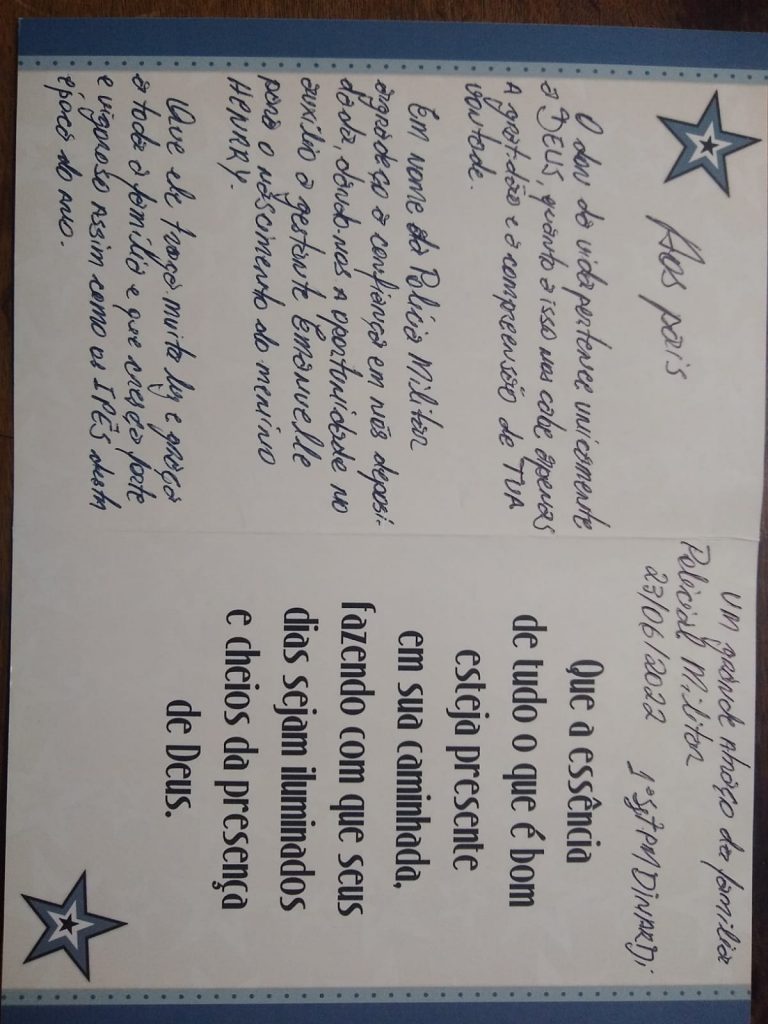 Aos pais
O dom da vida pertence unicamente
a DEUS, quanto a isso nos cabe apenas
A gratidão e a compreensão de TUA
vontade.
Em nome da Polícia Militar
agradeço a confiança em nós deposi-
dada, dando-nos a oportunidade no
auxílio a gestante Emanuelle
para o nascimento do menino
HENRY.
Que ele traga muita luz e graça
a toda a família e que cresça forte
e vigoroso assim como os IPÊS desta
época do ano.
Um grande abraço da família
Policial Militar
23/06/2022 1º Sgt PM DINARDI
Que a essência
de tudo o que é bom
esteja presente
em sua caminhada,
fazendo com que seus
dias sejam iluminados
e cheios da presença
de Deus.